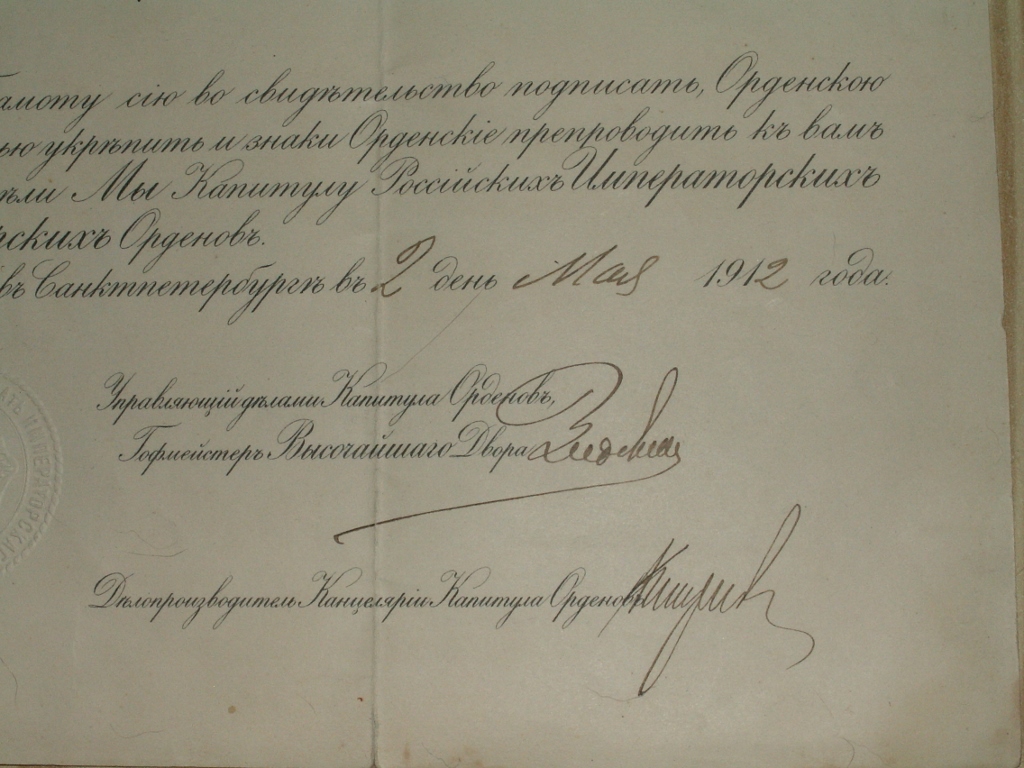 амоту сію во свидѣтельство подписать, Орденскою
ью укрѣпить и знаки Орденскіе препроводить къ вамъ
ѣли Мы Капитулу Россійскихъ Императорскихъ
рскихъ Орденовъ.
въ Санктпетербургѣ въ 2 день Мая 1912 года.
Управляющій дѣлами Капитула Орденовъ,
Гофмейстеръ Высочайшаго Двора
Дѣлопроизводитель Канцеляріи Капитула Орденовъ